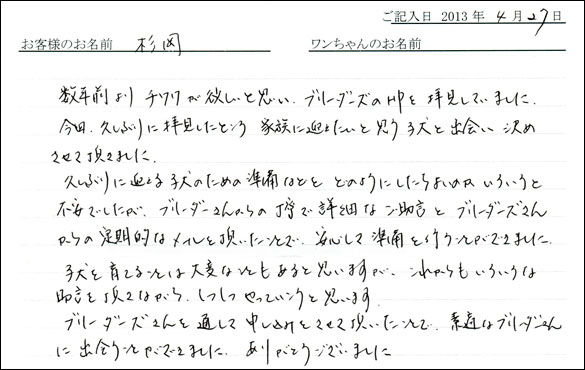 ご記入日 2013年 4月27日
お客様のお名前 杉岡 ワンちゃんのお名前
数年前より チワワが欲しいと思い、ブリーダーズのHPを拝見していました。
今回、久しぶりに拝見したところ 家族に迎えたいと思う子犬と出会い 決め
させて頂きました。
久しぶりに迎える子犬のための準備などを どのようにしたらよいのか いろいろと
不安でしたが、ブリーダーさんからの丁寧で詳細なご助言と ブリーダーズさん
からの定期的なメールを頂いたことで、安心して準備を行うことができました。
子犬を育てることは大変なこともあると思いますが、これからもいろいろな
助言を頂きながら、しつけ やっていこうと思います。
ブリーダーズさんを通して 申し込みをさせて頂いたことで、素敵なブリーダーさん
に出会うことができました。ありがとうございました